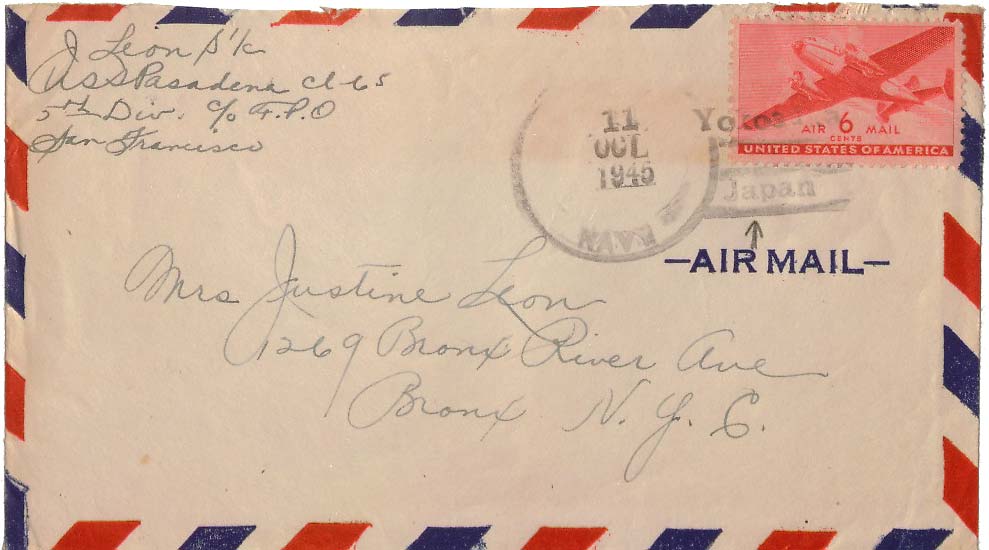 J Leon S'1/c
USS Pasadena Cl-65
5th Div. c/o F.P.O
San Francisco
11
OCT
1945
NAVY
Japan
AIR 6 MAIL
CENTS
UNITED STATES OF AMERICA
-AIR MAIL-
Mrs Justine Leon
1269 Bronx River Ave
Bronx N. Y. C.